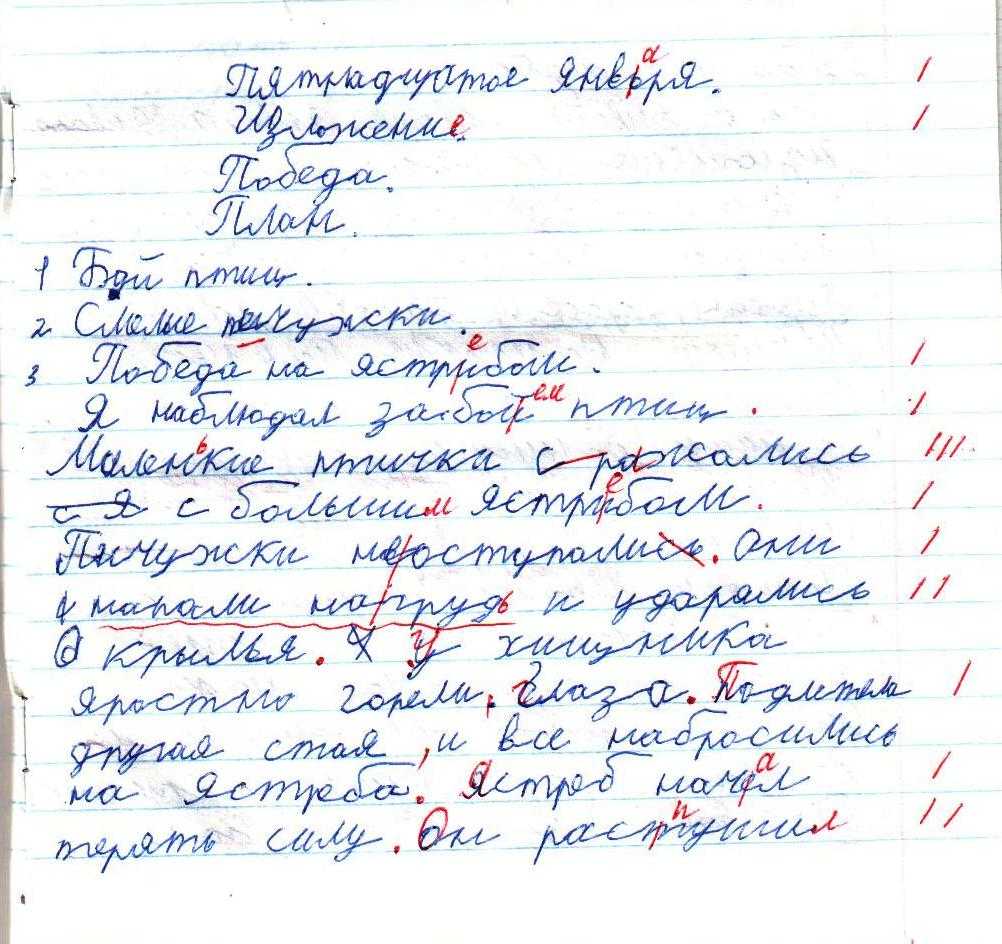 Пятнадцатое января.
Изложение.
Победа.
План.
1 Бой птиц.
2 Смелые пичужки.
3 Победа на ястребом.
Я наблюдал забоем птиц.
Маленькие птички с ражались
с я с большим ястребом.
Пичужки не оступались. Они
напали на грудь и ударялись
о крылья. У хищника
яростно горели глаза. Подлетела
другая стая, и все набросились
на ястреба. Ястреб начал
терять силу. Он распушил